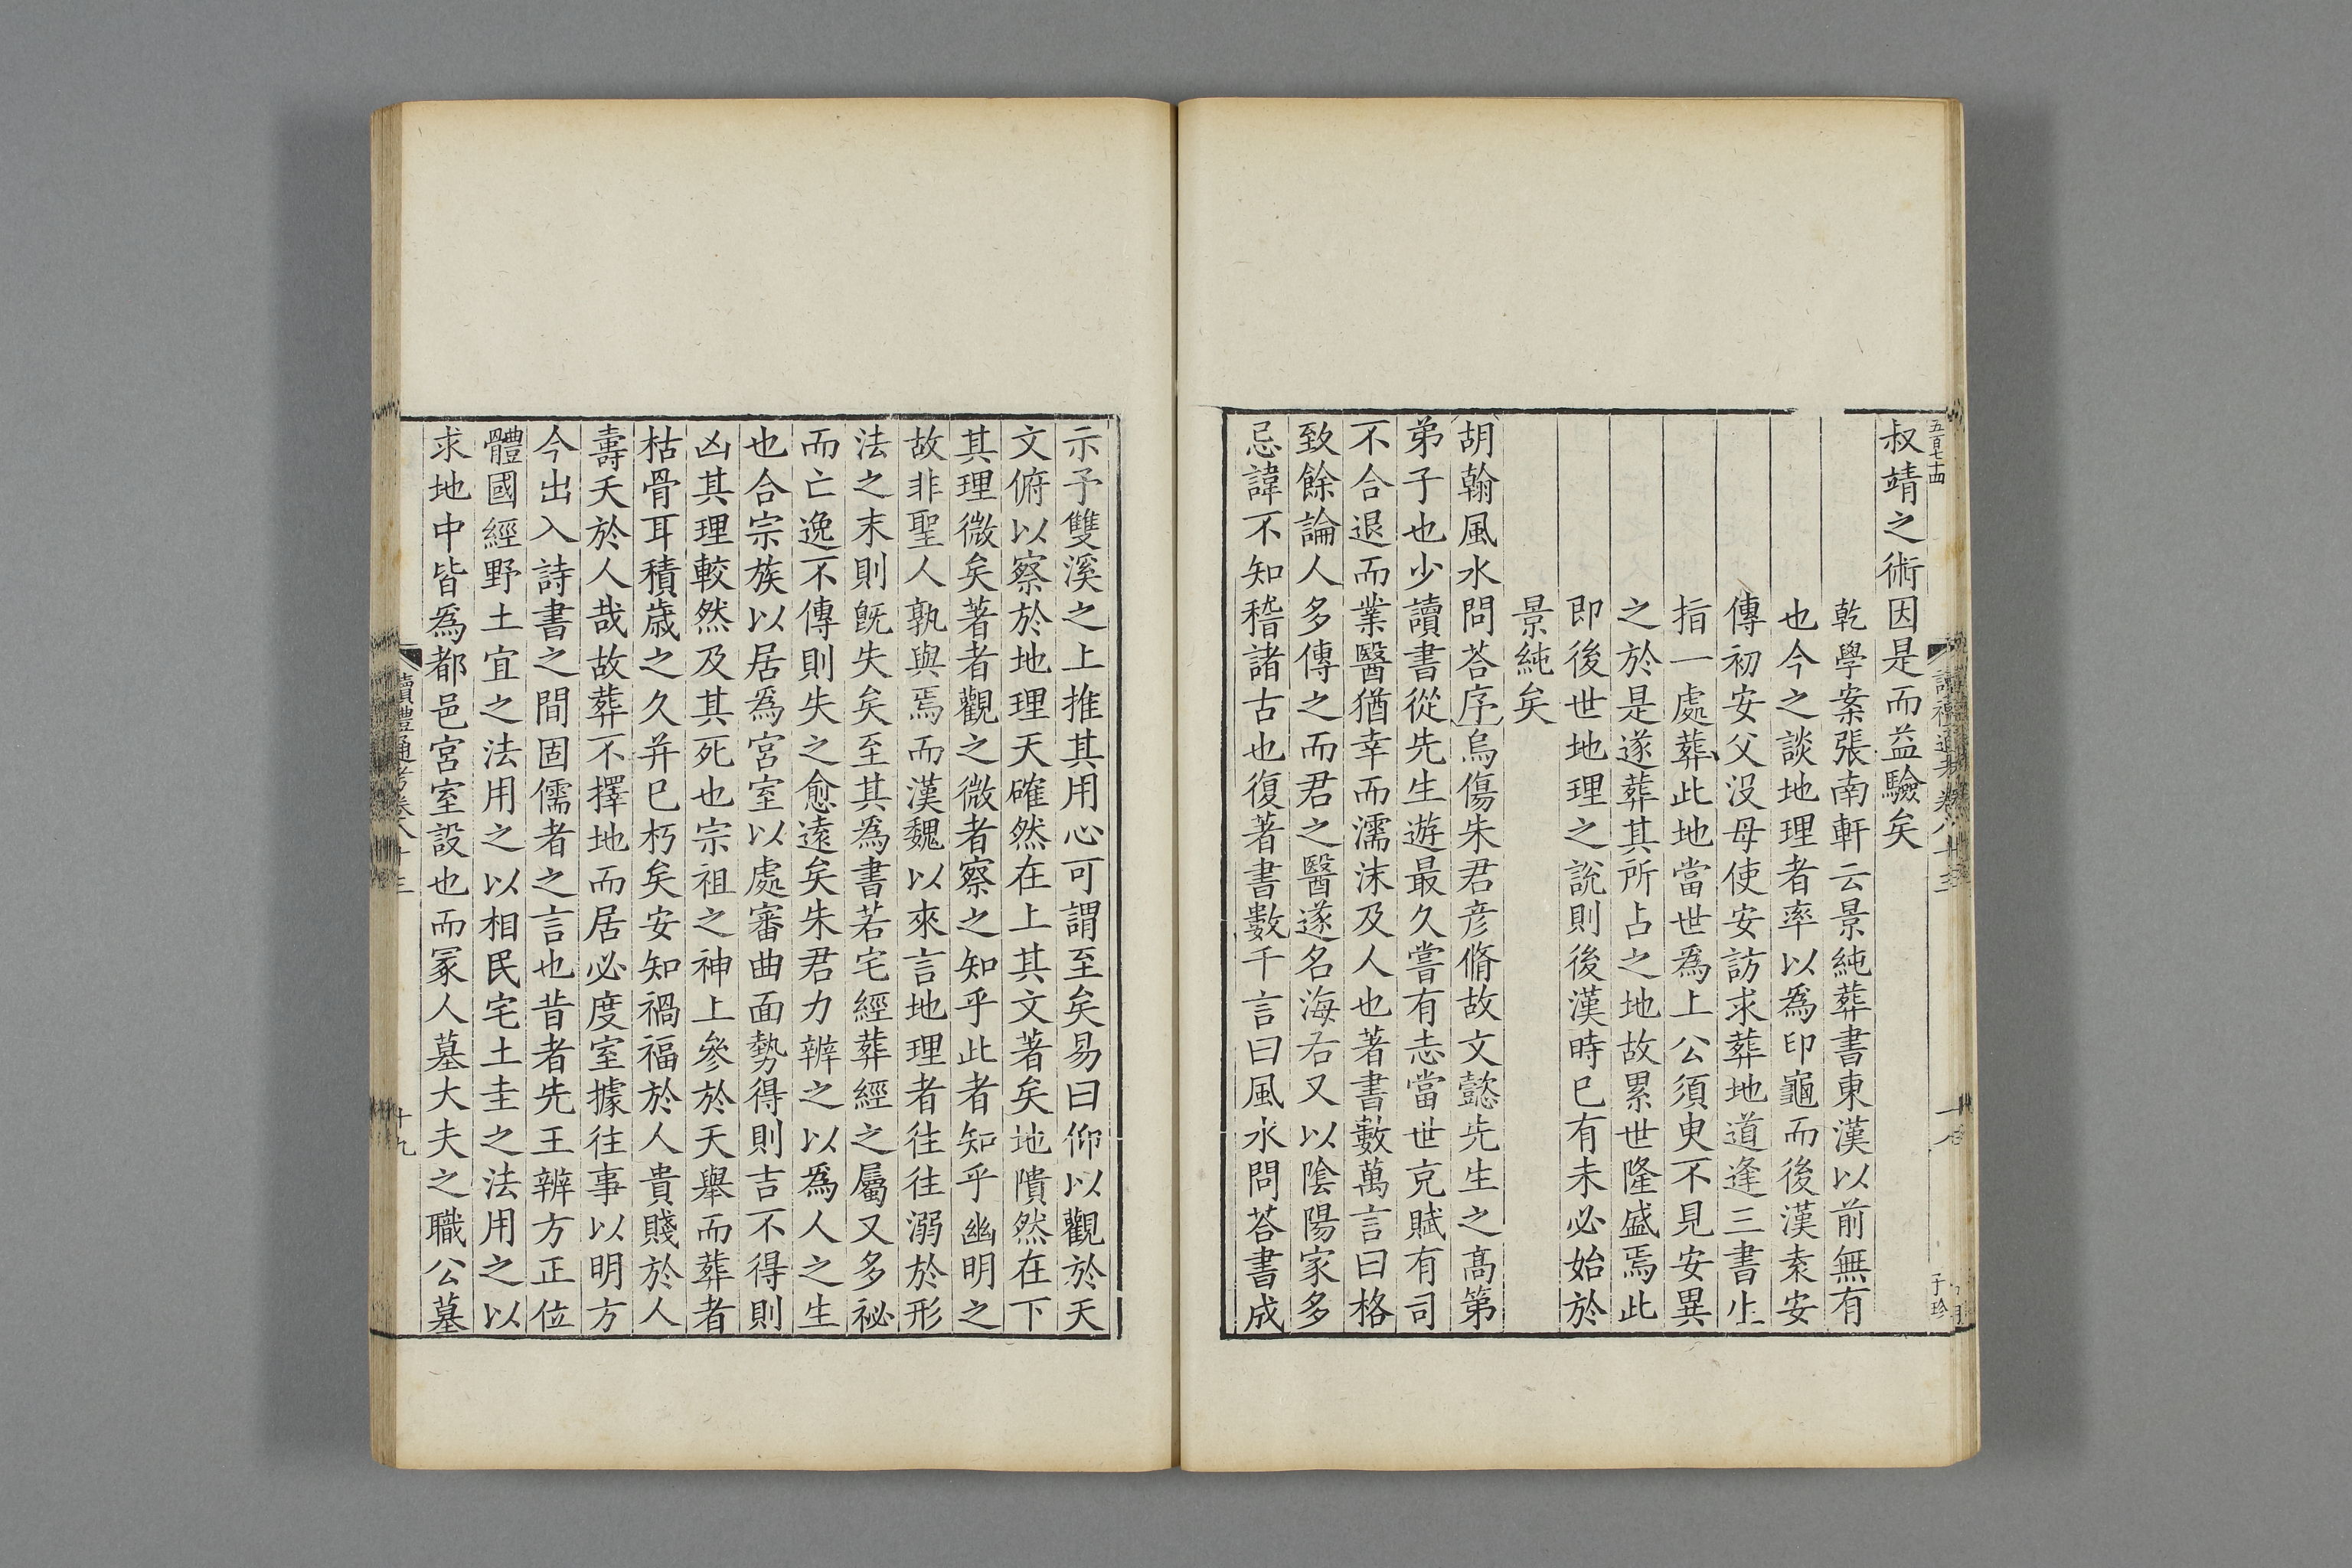 五百七十四
叔靖之術因是而益驗矣
乾學案張南軒云景純葬書東漢以前無有
也今之談地理者率以爲印龜而後漢袁安
傳初安父没母使安訪求葬地道逢三書生
指一處葬此地當世爲上公須臾不見安異
之於是遂葬其所占之地故累世隆盛焉此
即後世地理之說則後漢時已有未必始於
景純矣
胡翰風水問荅序烏傷朱君彥脩故文懿先生之高第
弟子也少讀書從先生遊最久嘗有志當世克賦有司
不合退而業醫猶幸而濡沫及人也著書數萬言曰格
致餘論人多傳之而君之醫遂名海右又以陰陽家多
忌諱不知稽諸古也復著書數千言曰風水問荅書成
示予雙溪之上推其用心可謂至矣易曰仰以觀於天
文俯以察於地理天確然在上其文著矣地隤然在下
其理微矣著者觀之微者察之知乎此者知乎幽明之
故非聖人孰與焉而漢魏以來言地理者往往溺於形
法之末則旣失矣至其爲書若宅經葬經之屬又多祕
而亡逸不傳則失之愈遠矣朱君力辨之以爲人之生
也合宗族以居爲宮室以處審曲面勢得則吉不得則
凶其理較然及其死也宗祖之神上參於天舉而葬者
枯骨耳積歲之久并已朽矣安知禍福於人貴賤於人
壽夭於人哉故葬不擇地而居必度室據往事以明方
今出入詩書之間固儒者之言也昔者先王辨方正位
體國經野土宜之法用之以相民宅土圭之法用之以
求地中皆爲都邑宮室設也而冢人墓大夫之職公墓
讀禮通考卷八十三
十九